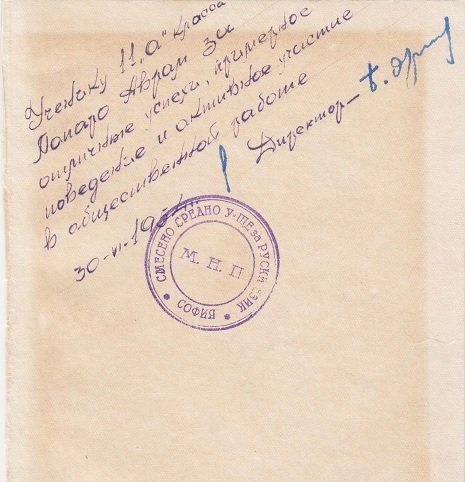 Ученику 11 „а" класса
Попаро Аврам за
отличные успехи, примерное
поведение и активное участие
в общественной работе
Директор –
30-VI-19
СМЕСЕНО СРЕДНО У-ЩЕ за РУСКИ ЕЗИК
М. Н. П
* СОФИЯ *